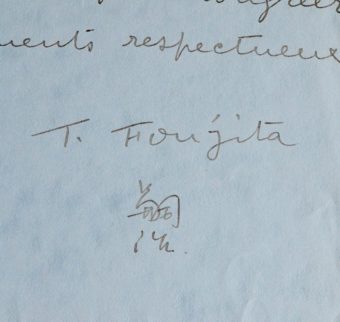 ments respectueux
T. Foujita
嗣治